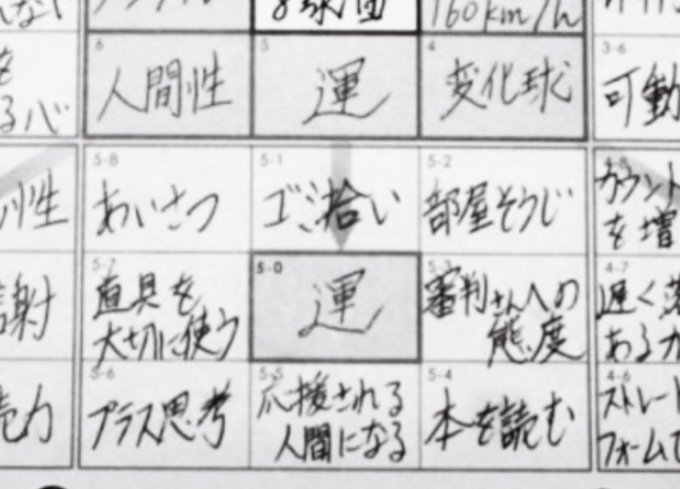 8球団
160km/h
6 5 4 3-6
人間性 運 変化球 可動
を
る心
5-8 5-1 5-2
あいさつ ゴミ拾い 部屋そうじ カウント
性 を増
5-7 5-0 5-3 4-7
謝 道具を 運 審判さんへの 遅く落
大切に使う 態度 ある
5-6 5-5 5-4 4-6
力 プラス思考 応援される 本を読む ストレート
人間になる フォームで